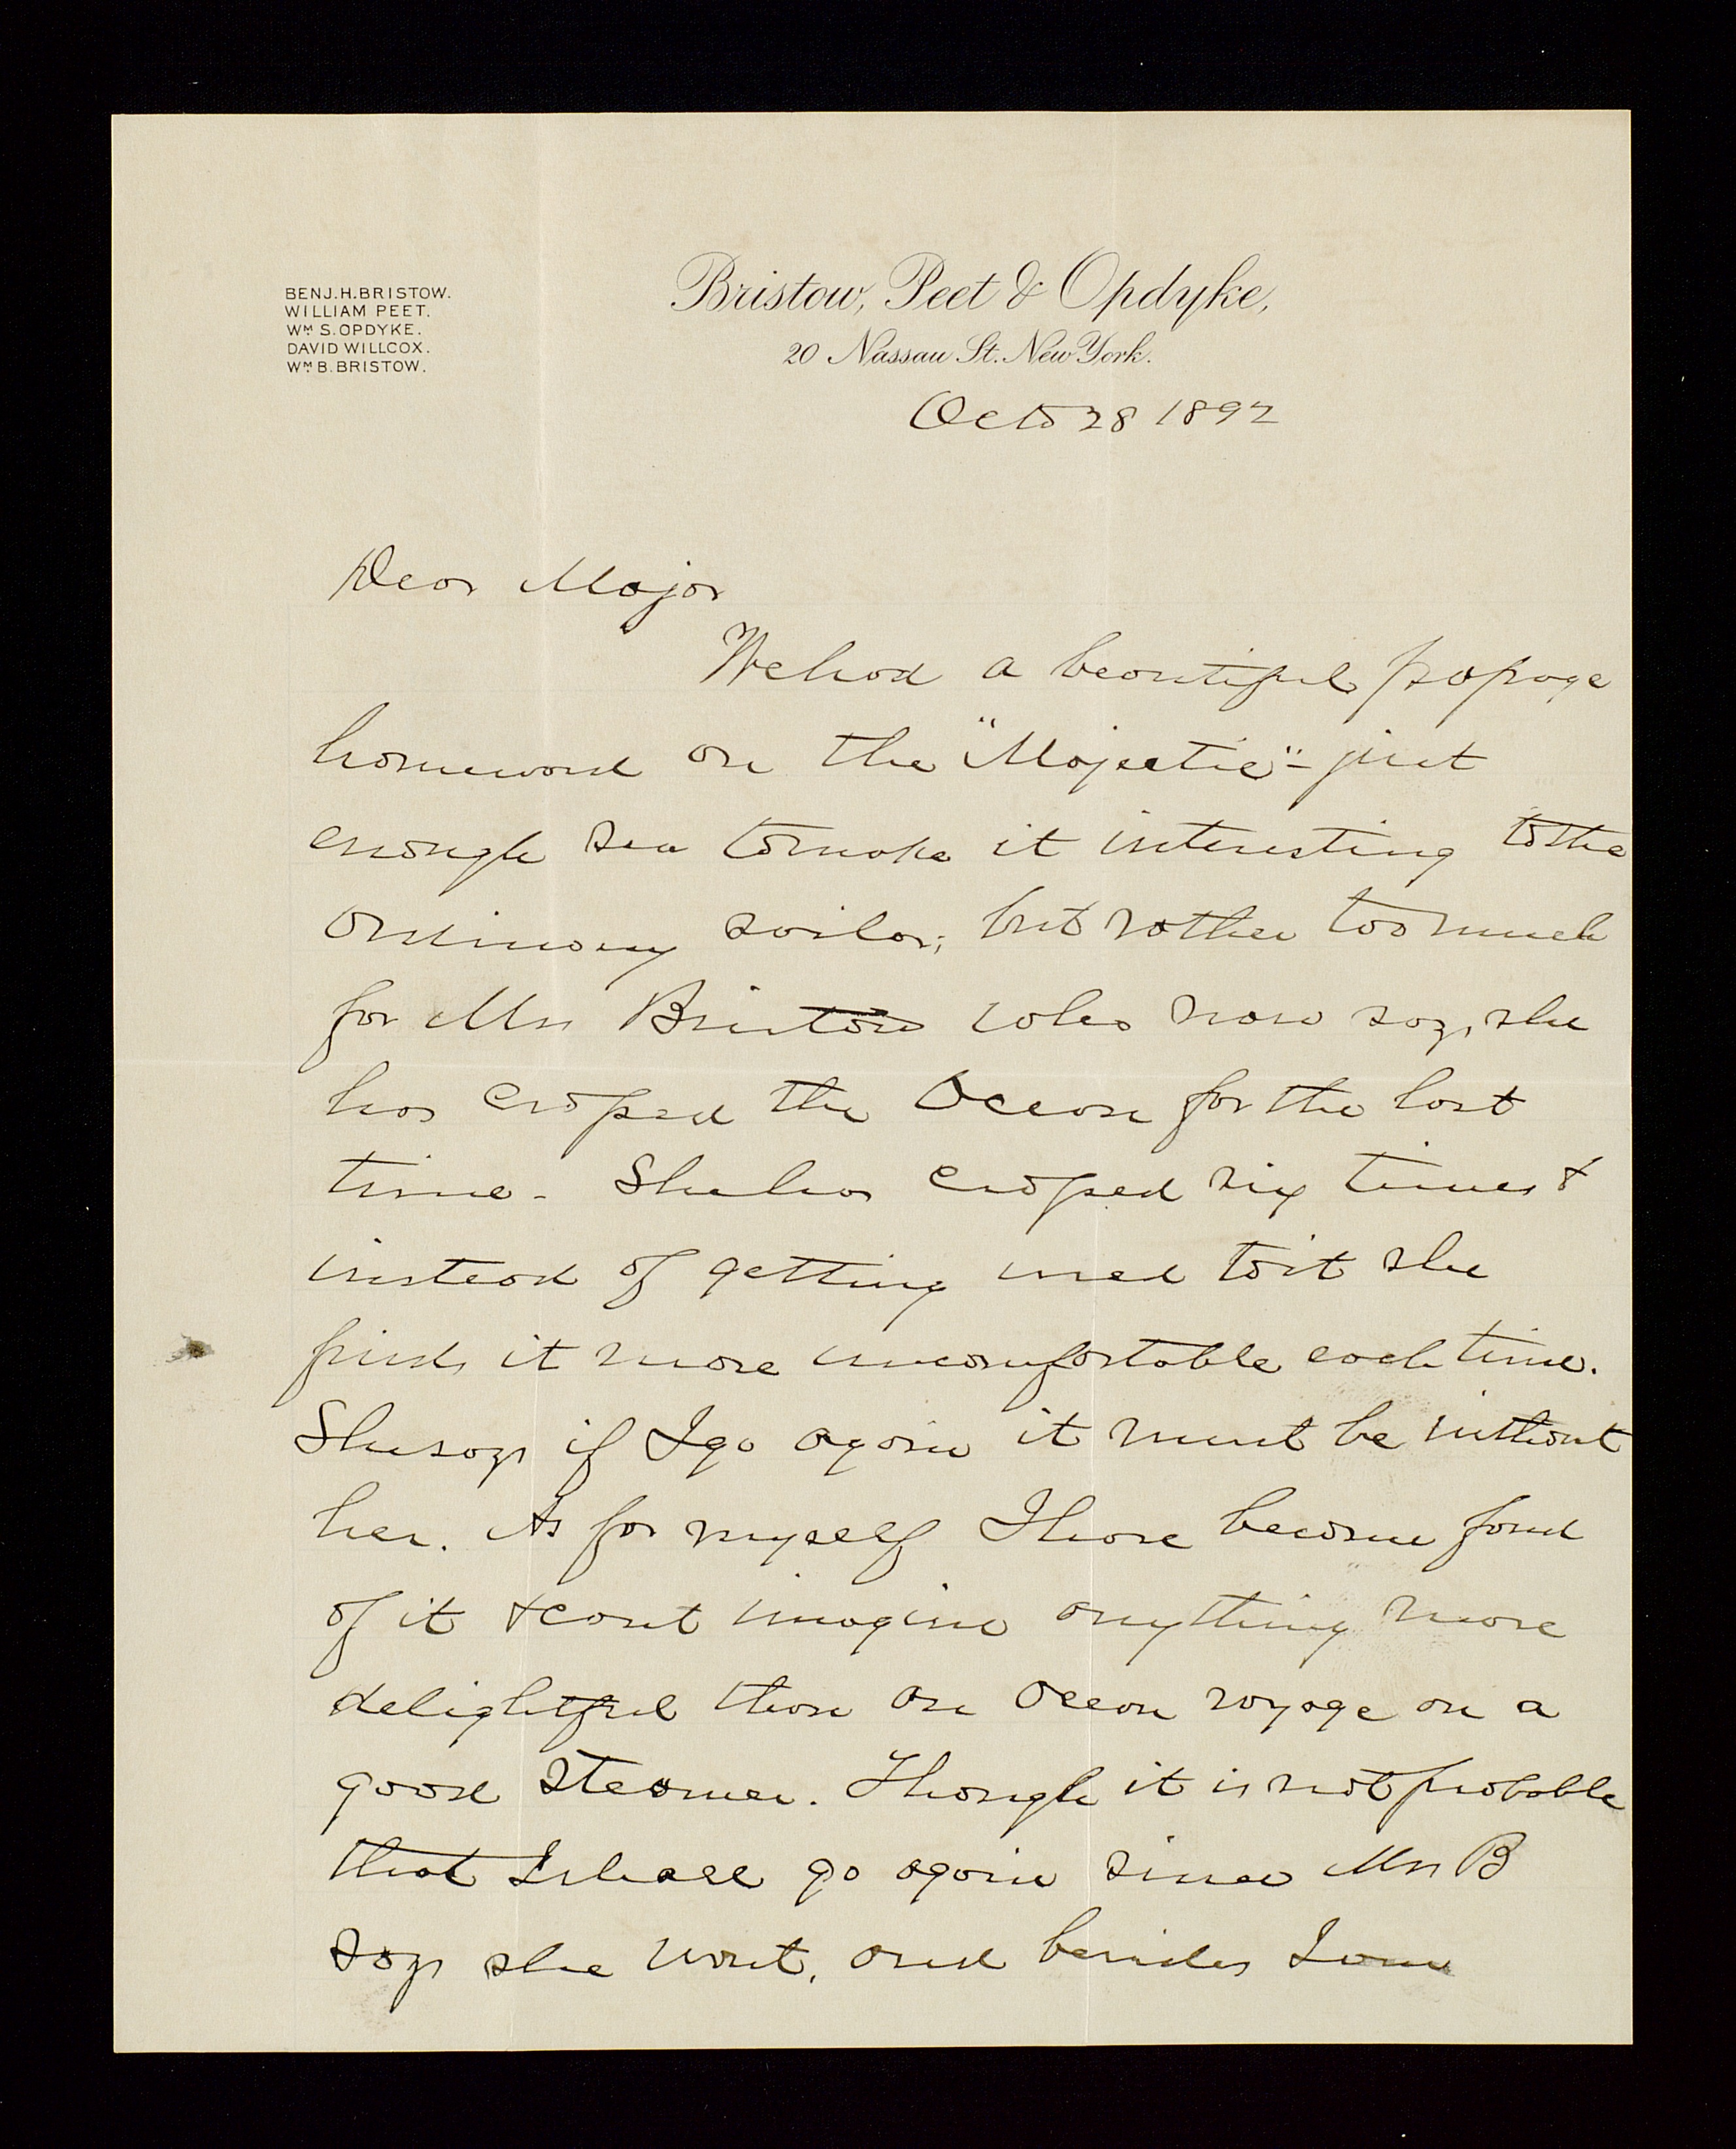 BENJ. H. BRISTOW.
WILLIAM PEET.
WM. S. OPDYKE.
DAVID WILLCOX.
WM. B. BRISTOW.
Bristow, Peet & Opdyke,
20 Nassau St. New York.
Octo 28 1892
Dear Major
We had a beautiful passage
homeward on the "Majestic" - just
enough sea to make it interesting to the
ordinary sailor; but rather too much
for Mrs Bristow who now says she
has crossed the Ocean for the last
time - She has crossed six times &
instead of getting used to it she
finds it more uncomfortable each time.
She says if I go again it must be without
her. As for myself I have become fond
of it & cant imagine anything more
delightful than an Ocean voyage on a
good steamer. Though it is not probable
that I shall go again since Mrs B
says she wont, and besides I am